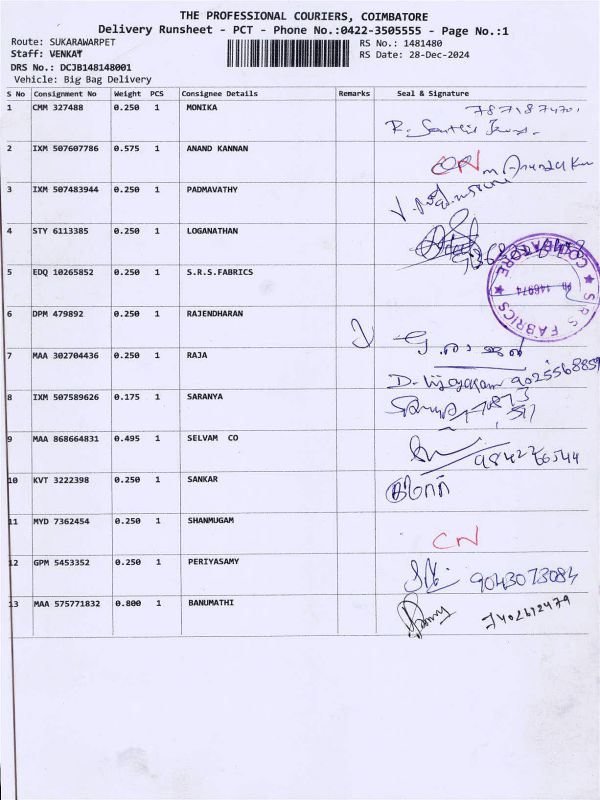 THE PROFESSIONAL COURIERS, COIMBATORE
Delivery Runsheet - PCT - Phone No.:0422-3505555 - Page No.:1
Route: SUKARAWARPET
RS No.: 1481480
Staff: VENKAT
RS Date: 28-Dec-2024
DRS No.: DCJB148148001
Vehicle: Big Bag Delivery
S No Consignment No Weight PCS Consignee Details Remarks Seal & Signature
1 CMM 327488 0.250 1 MONIKA
2 IXM 507607786 0.575 1 ANAND KANNAN
CN
3 IXM 507483944 0.250 1 PADMAVATHY
4 STY 6113385 0.250 1 LOGANATHAN
5 EDQ 10265852 0.250 1 S.R.S.FABRICS
S.R.S. FABRICS ★ COIMBATORE ★
6 DPM 479892 0.250 1 RAJENDHARAN
7 MAA 302704436 0.250 1 RAJA
8 IXM 507589626 0.175 1 SARANYA
9 MAA 868664831 0.495 1 SELVAM CO
10 KVT 3222398 0.250 1 SANKAR
11 MYD 7362454 0.250 1 SHANMUGAM
CN
12 GPM 5453352 0.250 1 PERIYASAMY
9043073084
13 MAA 575771832 0.800 1 BANUMATHI
7402612479